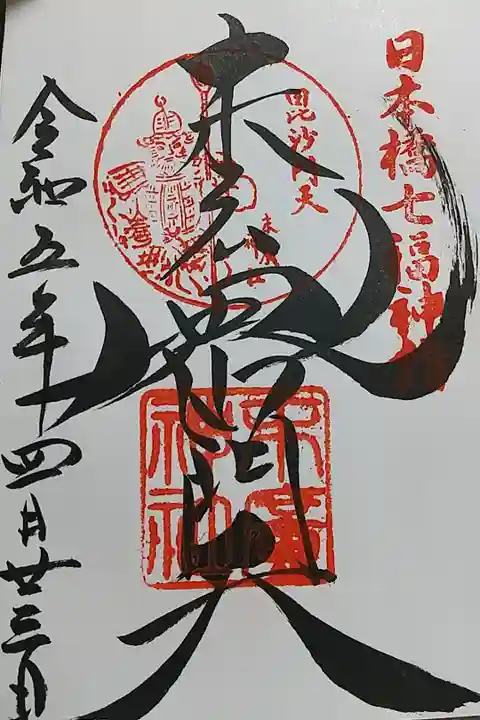 日本橋七福神
毘沙門天
末廣神社
末廣 毘沙門天
令和五年四月廿三日